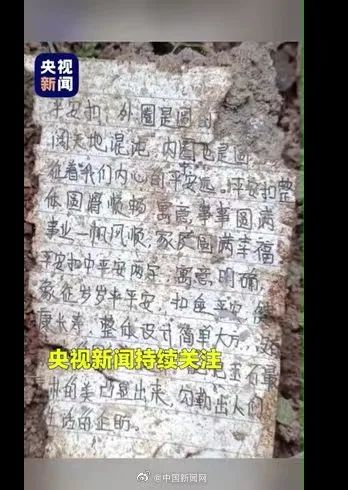 央视
新闻
平安扣，外圈是圆的
阔天地混沌，内圈也是圆
征着我们内心的平安远。平安扣整
体圆滑顺畅，寓意，事事圆满
事业一帆风顺，家庭圆满幸福
平安扣中平安两字，寓意，明确，
象征岁岁平平安，扣住平安，健
康长寿，整体设计简单大方，
央视新闻持续关注
的美凸显出来，勾勒出人们
生活的企盼。
@中国新闻网